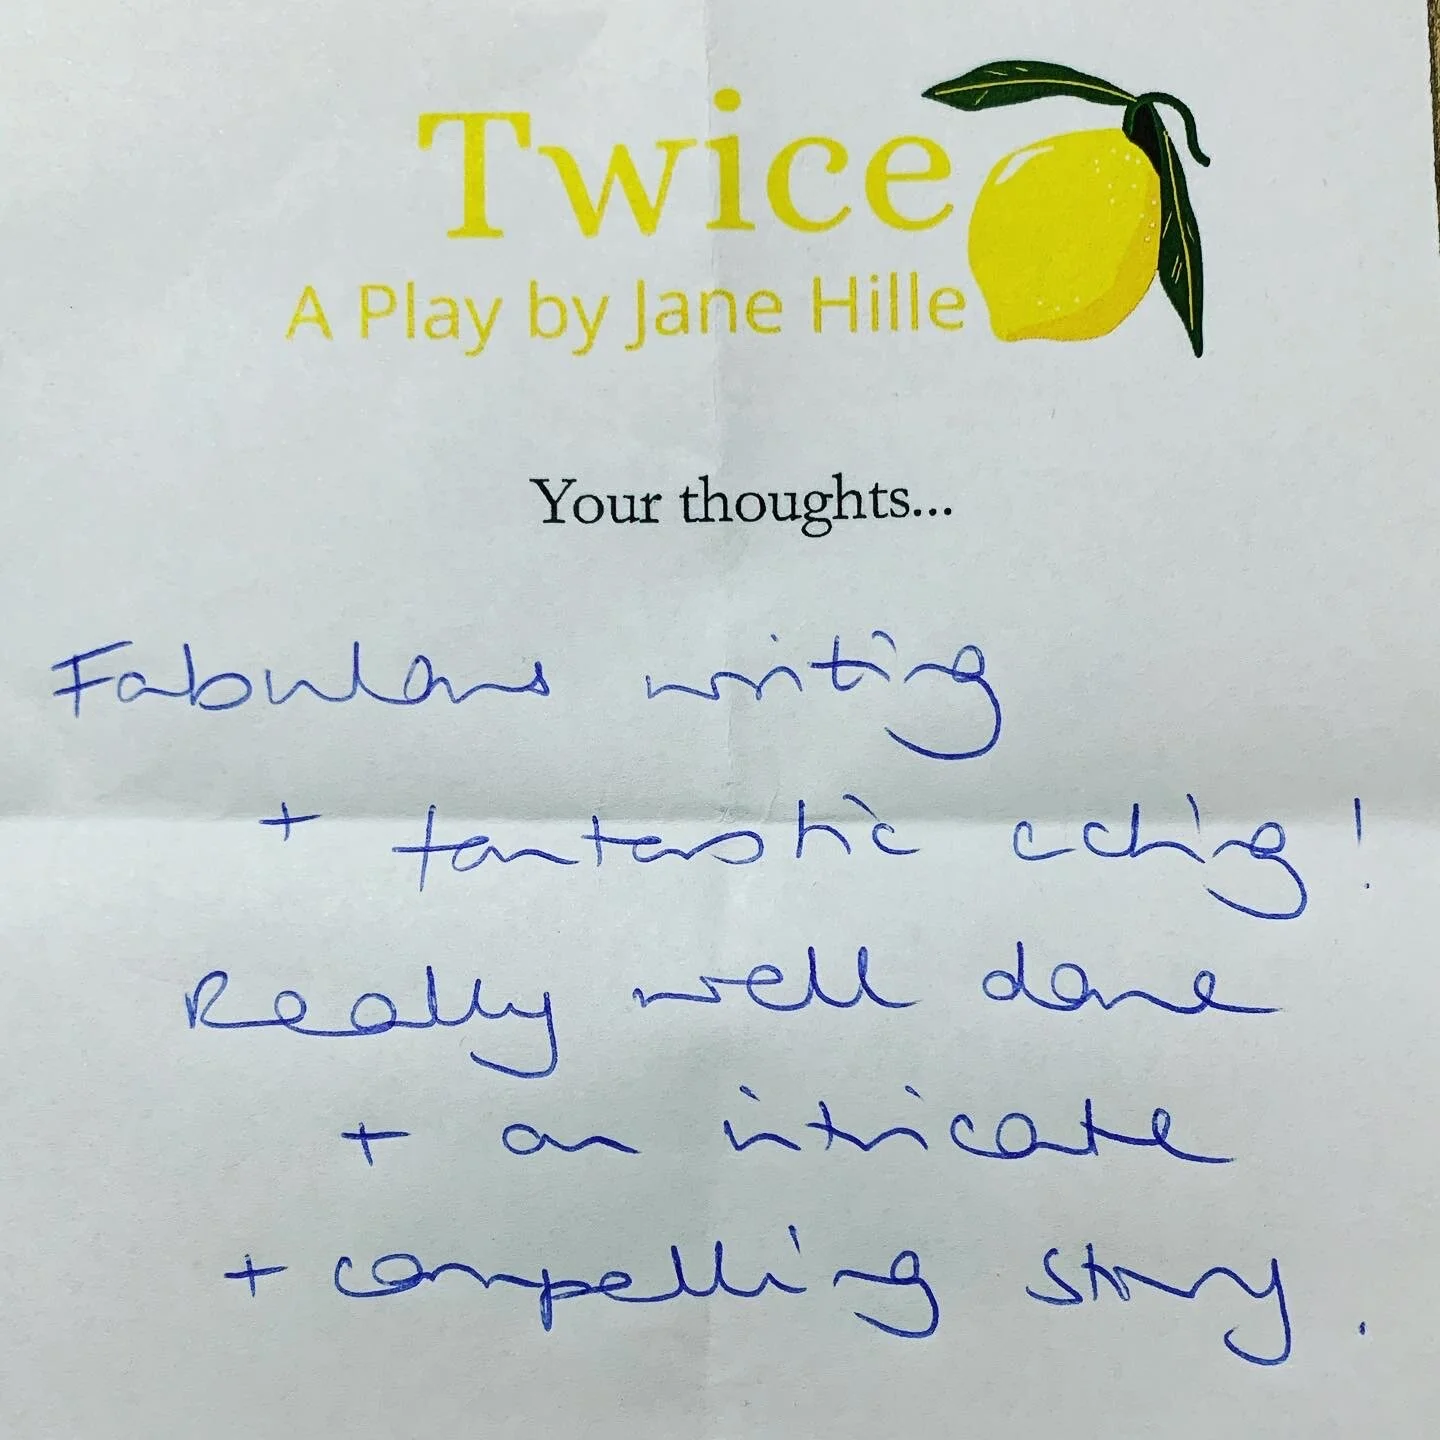 Twice
A Play by Jane Hille
Your thoughts...
Fabulous writing
+ fantastic acting!
Really well done
+ an intricate
+ compelling story.